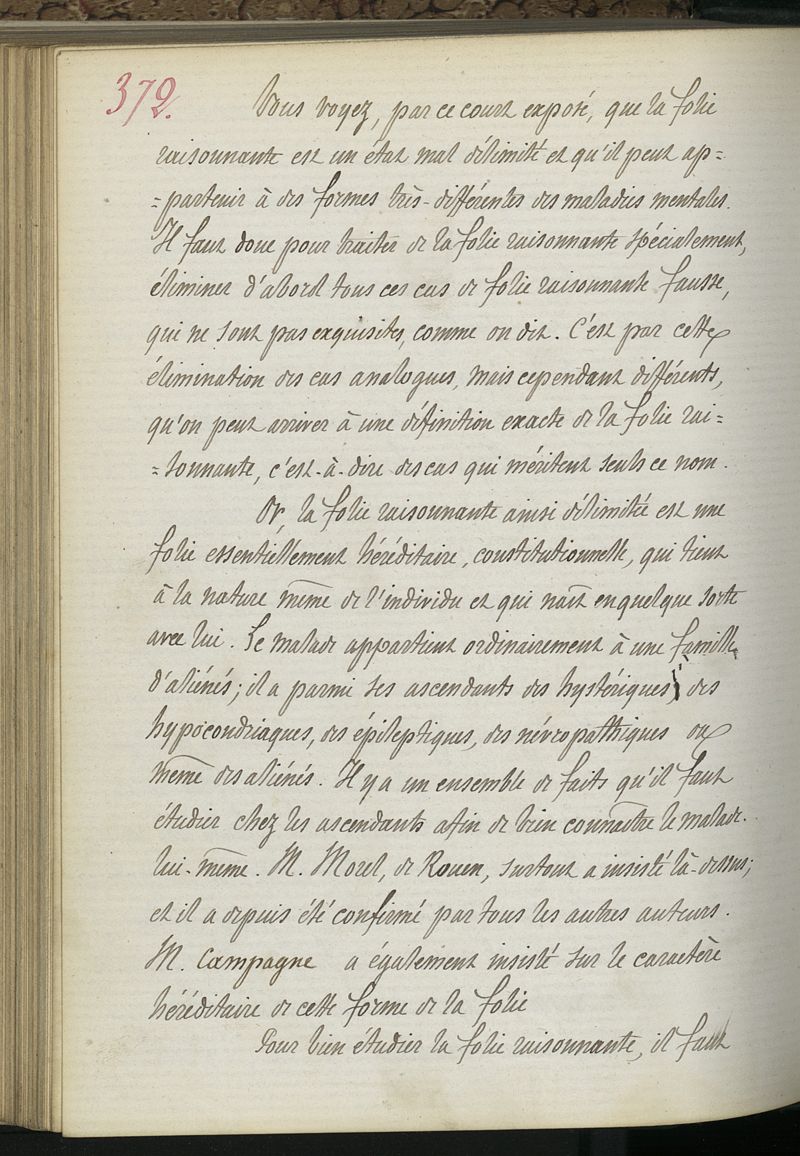 372.
Vous voyez, par ce court exposé, que la folie
raisonnante est un état mal délimité et qu'il peut ap-
=partenir à des formes très-différentes des maladies mentales.
Il faut donc pour traiter de la folie raisonnante spécialement,
éliminer d'abord tous ces cas de folie raisonnante fausse,
qui ne sont pas exquisites, comme on dit. C'est par cette
élimination des cas analogues, mais cependant différents,
qu'on peut arriver à une définition exacte de la folie rai=
=sonnante, c'est-à-dire des cas qui méritent seuls ce nom.
Or, la folie raisonnante ainsi délimitée est une
folie essentiellement héréditaire, constitutionnelle, qui tient
à la nature même de l'individu et qui naît en quelque sorte
avec lui. Le malade appartient ordinairement à une famille
d'aliénés; il a parmi ses ascendants des hystériques, des
hypocondriaques, des épileptiques, des névropathiques ou
même des aliénés. Il y a un ensemble de faits qu'il faut
étudier chez les ascendants afin de bien connaître le malade
lui-même. M. Morel, de Rouen, surtout a insisté là-dessus;
et il a depuis été confirmé par tous les autres auteurs.
M. Campagne a également insisté sur le caractère
héréditaire de cette forme de la folie
Pour bien étudier la folie raisonnante, il faut